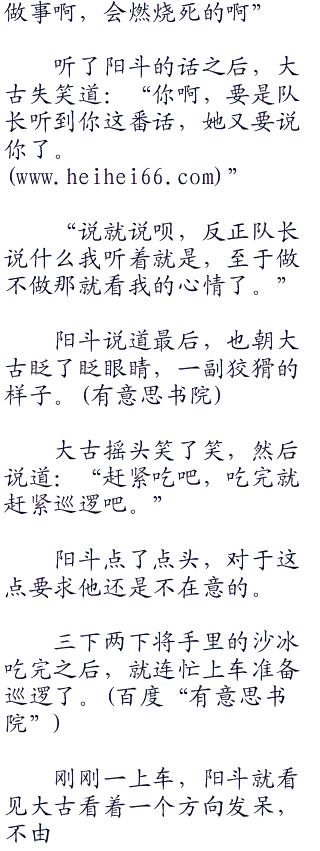 做事啊，会燃烧死的啊”
听了阳斗的话之后，大
古失笑道：“你啊，要是队
长听到你这番话，她又要说
你了。
(www.heihei66.com)”
“说就说呗，反正队长
说什么我听着就是，至于做
不做那就看我的心情了。”
阳斗说道最后，也朝大
古眨了眨眼睛，一副狡猾的
样子。(有意思书院)
大古摇头笑了笑，然后
说道：“赶紧吃吧，吃完就
赶紧巡逻吧。”
阳斗点了点头，对于这
点要求他还是不在意的。
三下两下将手里的沙冰
吃完之后，就连忙上车准备
巡逻了。(百度“有意思书
院”)
刚刚一上车，阳斗就看
见大古看着一个方向发呆，
不由